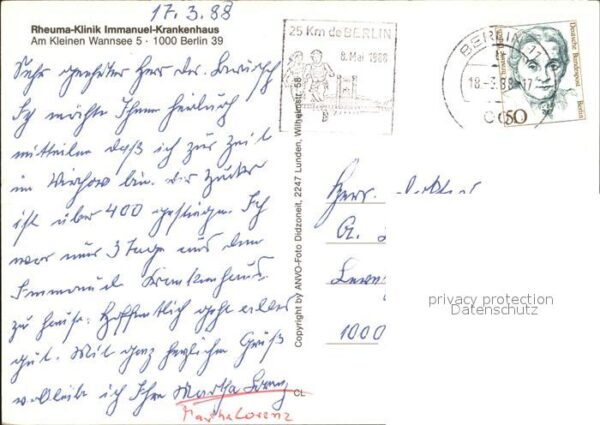 17.3.88
Rheuma-Klinik Immanuel-Krankenhaus
Am Kleinen Wannsee 5 · 1000 Berlin 39
Sehr geehrter Herr Dr.
Ich möchte Ihnen hierdurch
mitteilen daß ich zur Zeit
im Virchow bin. der Zucker
ist über 400 gestiegen. Ich
war nur 3 Tage aus dem
Immanuel Krankenhaus
zu hause. Hoffentlich geht alles
gut. Mit ganz herzlichem Gruß
verbleibe ich Ihre Martha Lorenz
Martha Lorenz
CL
Copyright by ANVO-Foto Didzoneit, 2247 Lunden, Wilhelmstr. 58
25 Km de BERLIN
8. Mai 1988
BERLIN 11
18.-3.88-17
Deutsche Bundespost
Berlin
50
Herr Doktor
1000
privacy protection
Datenschutz